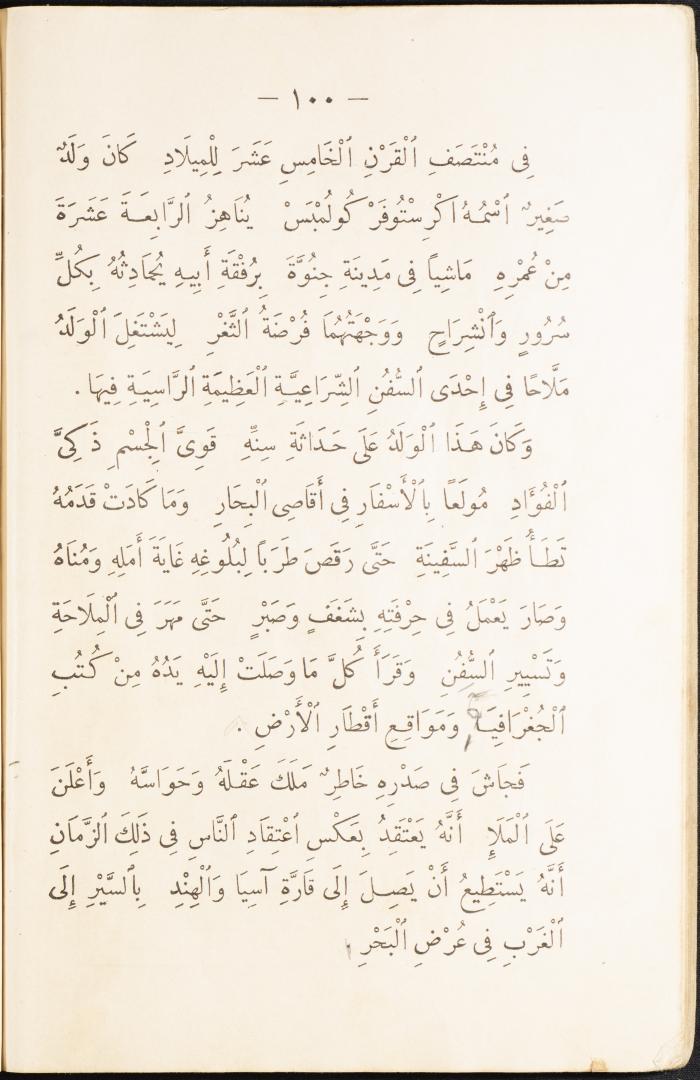 — ١٠٠ —
فِى مُنْتَصَفِ ٱلْقَرْنِ ٱلْخَامِسِ عَشَرَ لِلْمِيلَادِ كَانَ وَلَدٌ
صَغِيرٌ ٱسْمُهُ اكْرِسْتُوفَرْ كُولُمْبَسْ يُنَاهِزُ ٱلرَّابِعَةَ عَشَرَةَ
مِنْ عُمْرِهِ مَاشِياً فِى مَدِينَةِ جِنُوَّةَ بِرُفْقَةِ أَبِيهِ يُحَادِثُهُ بِكُلِّ
سُرُورٍ وَٱنْشِرَاحٍ وَوَجْهَتُهُمَا فُرْضَةُ ٱلثَّغْرِ لِيَشْتَغِلَ ٱلْوَلَدُ
مَلَّاحًا فِى إِحْدَى ٱلسُّفُنِ ٱلشِّرَاعِيَّةِ ٱلْعَظِيمَةِ ٱلرَّاسِيَةِ فِيهَا .
وَكَانَ هَـذَا ٱلْوَلَدُ عَلَى حَدَاثَةِ سِنِّهِ قَوِىَّ ٱلْجِسْمِ ذَكِىَّ
ٱلْفُؤَادِ مُولَعاً بِٱلْأَسْفَارِ فِى أَقَاصِى ٱلْبِحَارِ وَمَا كَادَتْ قَدَمُهُ
تَطَأُ ظَهْرَ ٱلسَّفِينَةِ حَتَّى رَقَصَ طَرَباً لِبُلُوغِهِ غَايَةَ أَمَلِهِ وَمُنَاهُ
وَصَارَ يَعْمَلُ فِى حِرْفَتِهِ بِشَغَفٍ وَصَبْرٍ حَتَّى مَهَرَ فِى ٱلْمِلَاحَةِ
وَتَسْيِيرِ ٱلسُّفُنِ وَقَرَأَ كُلَّ مَا وَصَلَتْ إِلَيْهِ يَدُهُ مِنْ كُتُبِ
ٱلْجُغْرَافِيَةِ وَمَوَاقِعِ أَقْطَارِ ٱلْأَرْضِ .
فَجَاشَ فِى صَدْرِهِ خَاطِرٌ مَلَكَ عَقْلَهُ وَحَوَاسَّهُ وَأَعْلَنَ
عَلَى ٱلْمَلَإِ أَنَّهُ يَعْتَقِدُ بِعَكْسِ ٱعْتِقَادِ ٱلنَّاسِ فِى ذَلِكَ ٱلزَّمَانِ
أَنَّهُ يَسْتَطِيعُ أَنْ يَصِلَ إِلَى قَارَّةِ آسِيَا وَٱلْهِنْدِ بِٱلسَّيْرِ إِلَى
ٱلْغَرْبِ فِى عُرْضِ ٱلْبَحْرِ .